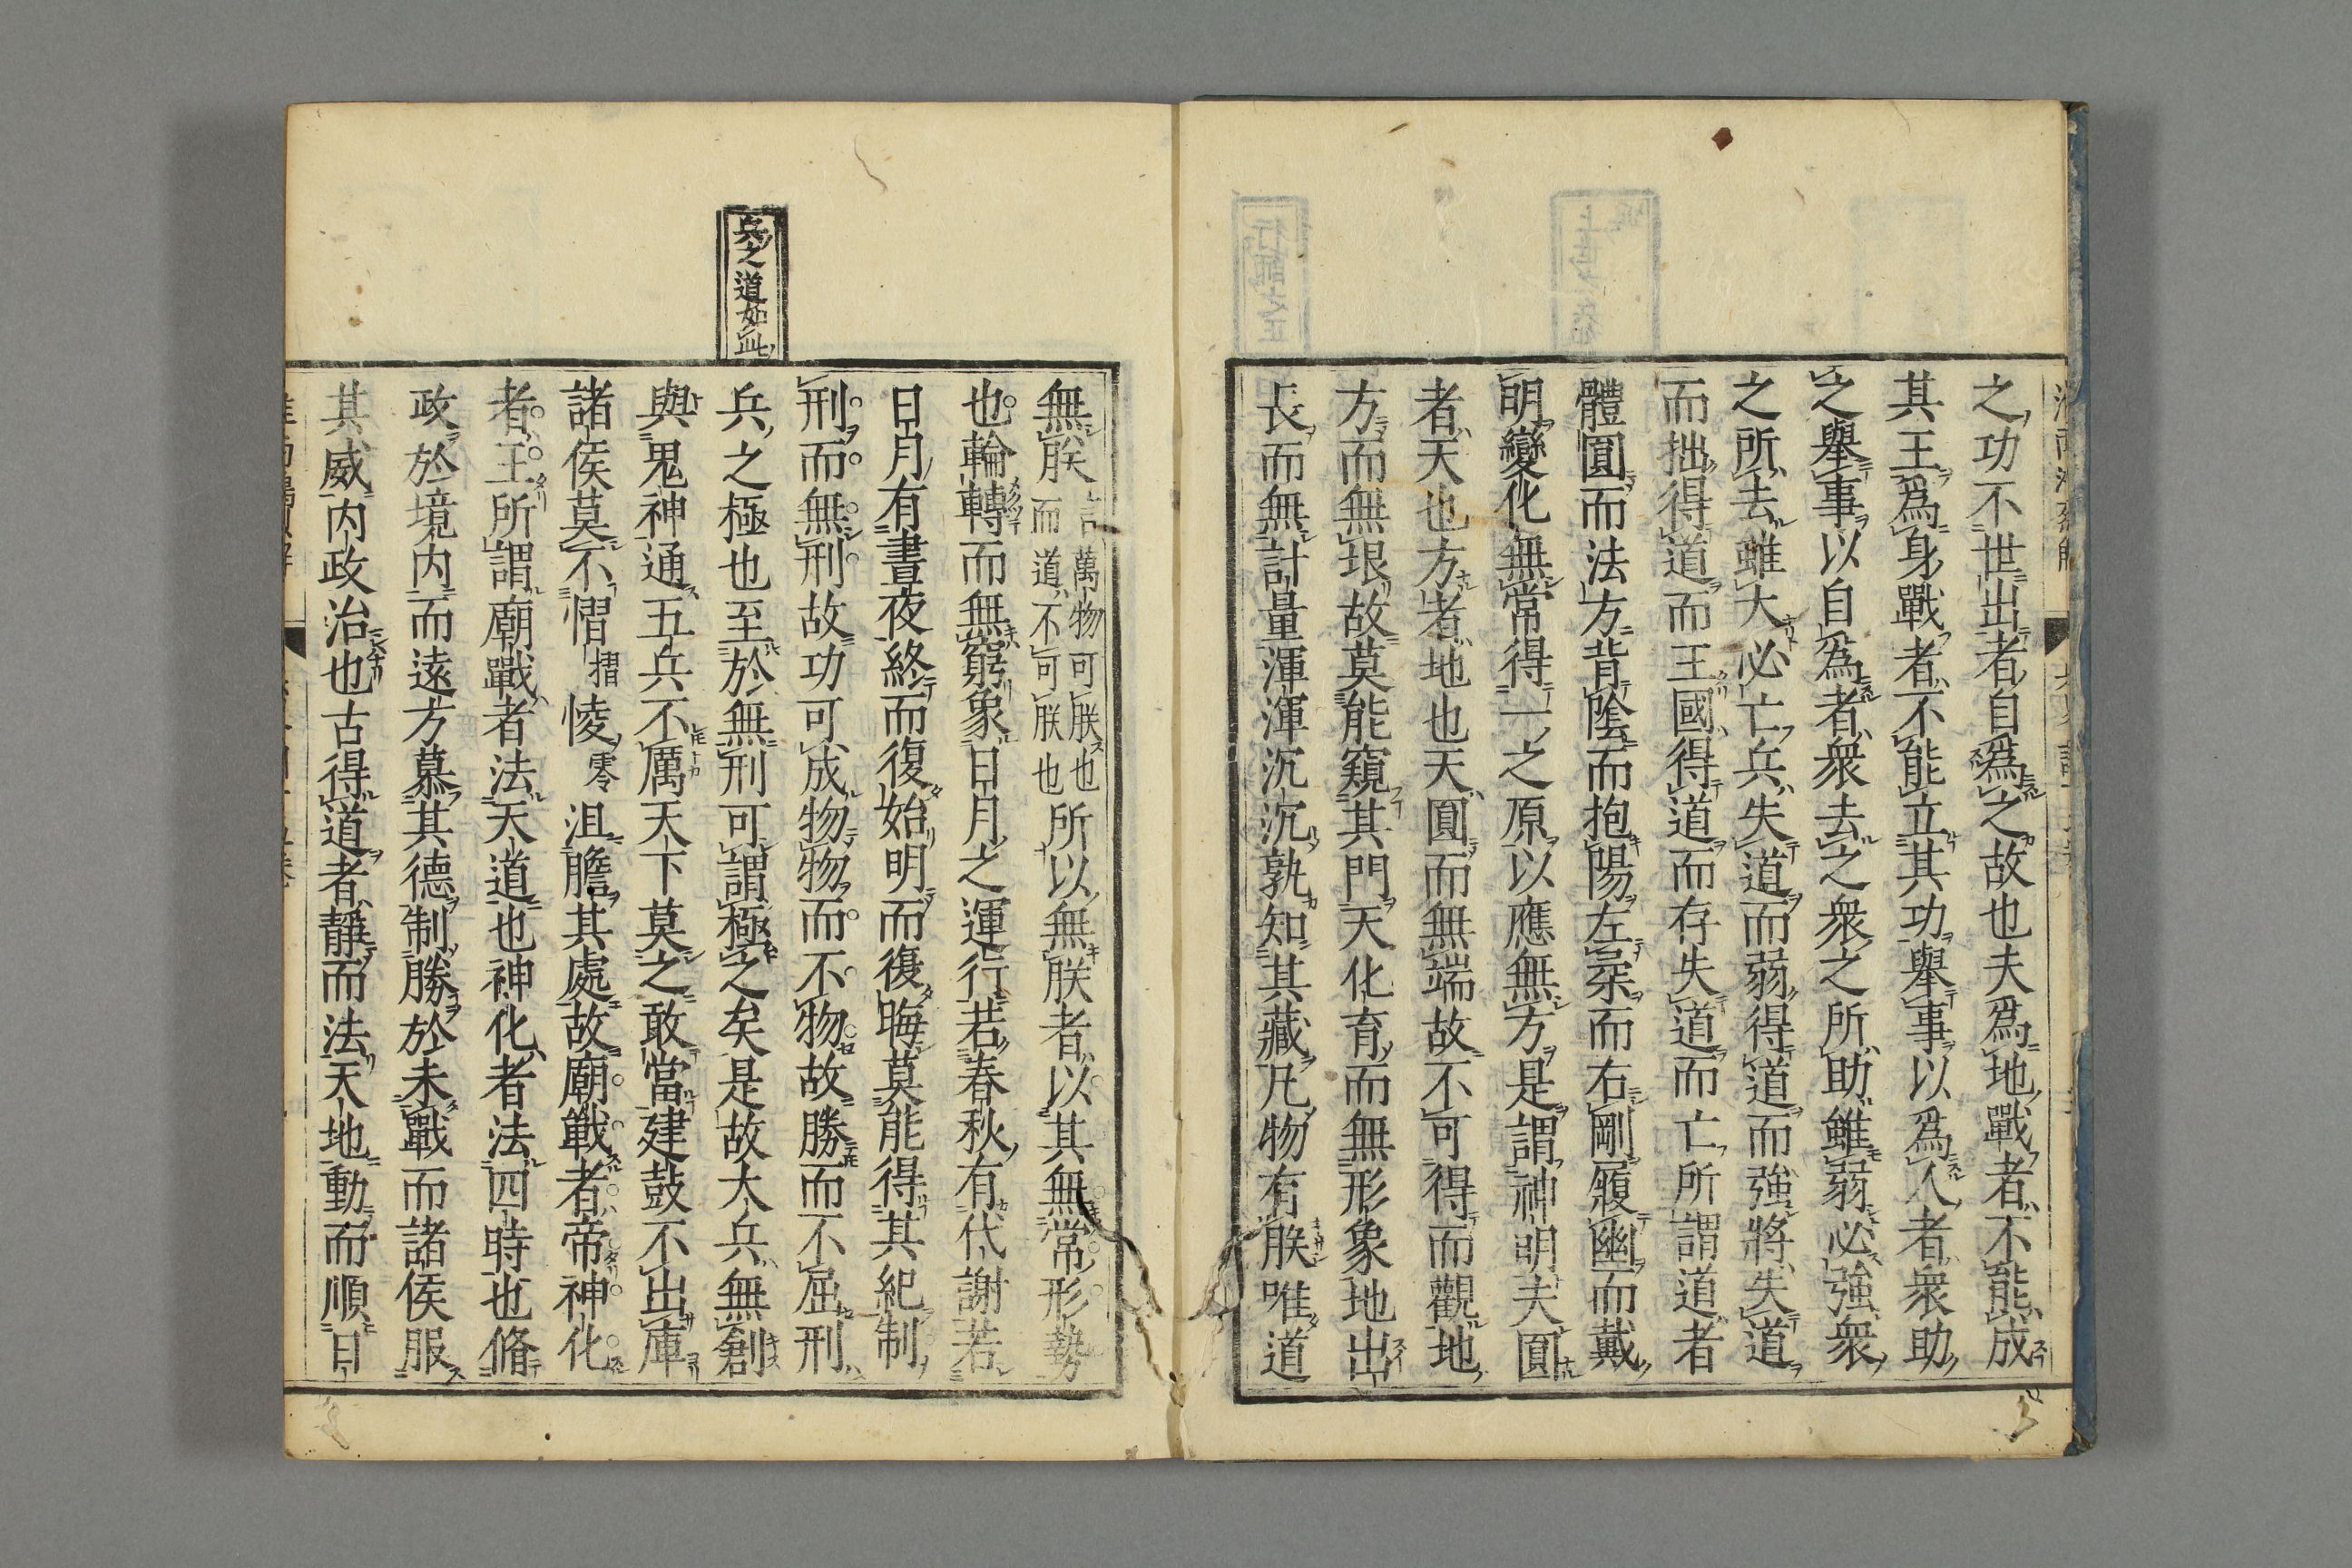 之功不世出者自爲之故也夫爲地戰者不能成
其王爲身戰者不能立其功舉事以爲人者衆助
之舉事以自爲者衆去之衆之所助雖弱必強衆
之所去雖大必亡兵失道而弱得道而強將失道
而拙得道而王國得道而存失道而亡所謂道者
體圓而法方背陰而抱陽左柔而右剛履幽而戴
明變化無常得一之原以應無方是謂神明夫圓
者天也方者地也天圓而無端故不可得而觀地
方而無垠故莫能窺其門天化育而無形象地出
長而無計量渾渾沉沉孰知其藏凡物有朕唯道
兵之道如此
無朕言萬物可朕也而道不可朕也所以無朕者以其無常形勢
也輪轉而無窮象日月之運行若春秋有代謝若
日月有晝夜終而復始明而復晦莫能得其紀制
刑而無刑故功可成物物而不物故勝而不屈刑
兵之極也至於無刑可謂極之矣是故大兵無創
與鬼神通五兵不厲天下莫之敢當建鼓不出庫
諸侯莫不慴摺㥄零沮膽其處故廟戰者帝神化
者王所謂廟戰者法天道也神化者法四時也脩
政於境內而遠方慕其德制勝於未戰而諸侯服
其威內政治也古得道者靜而法天地動而順日